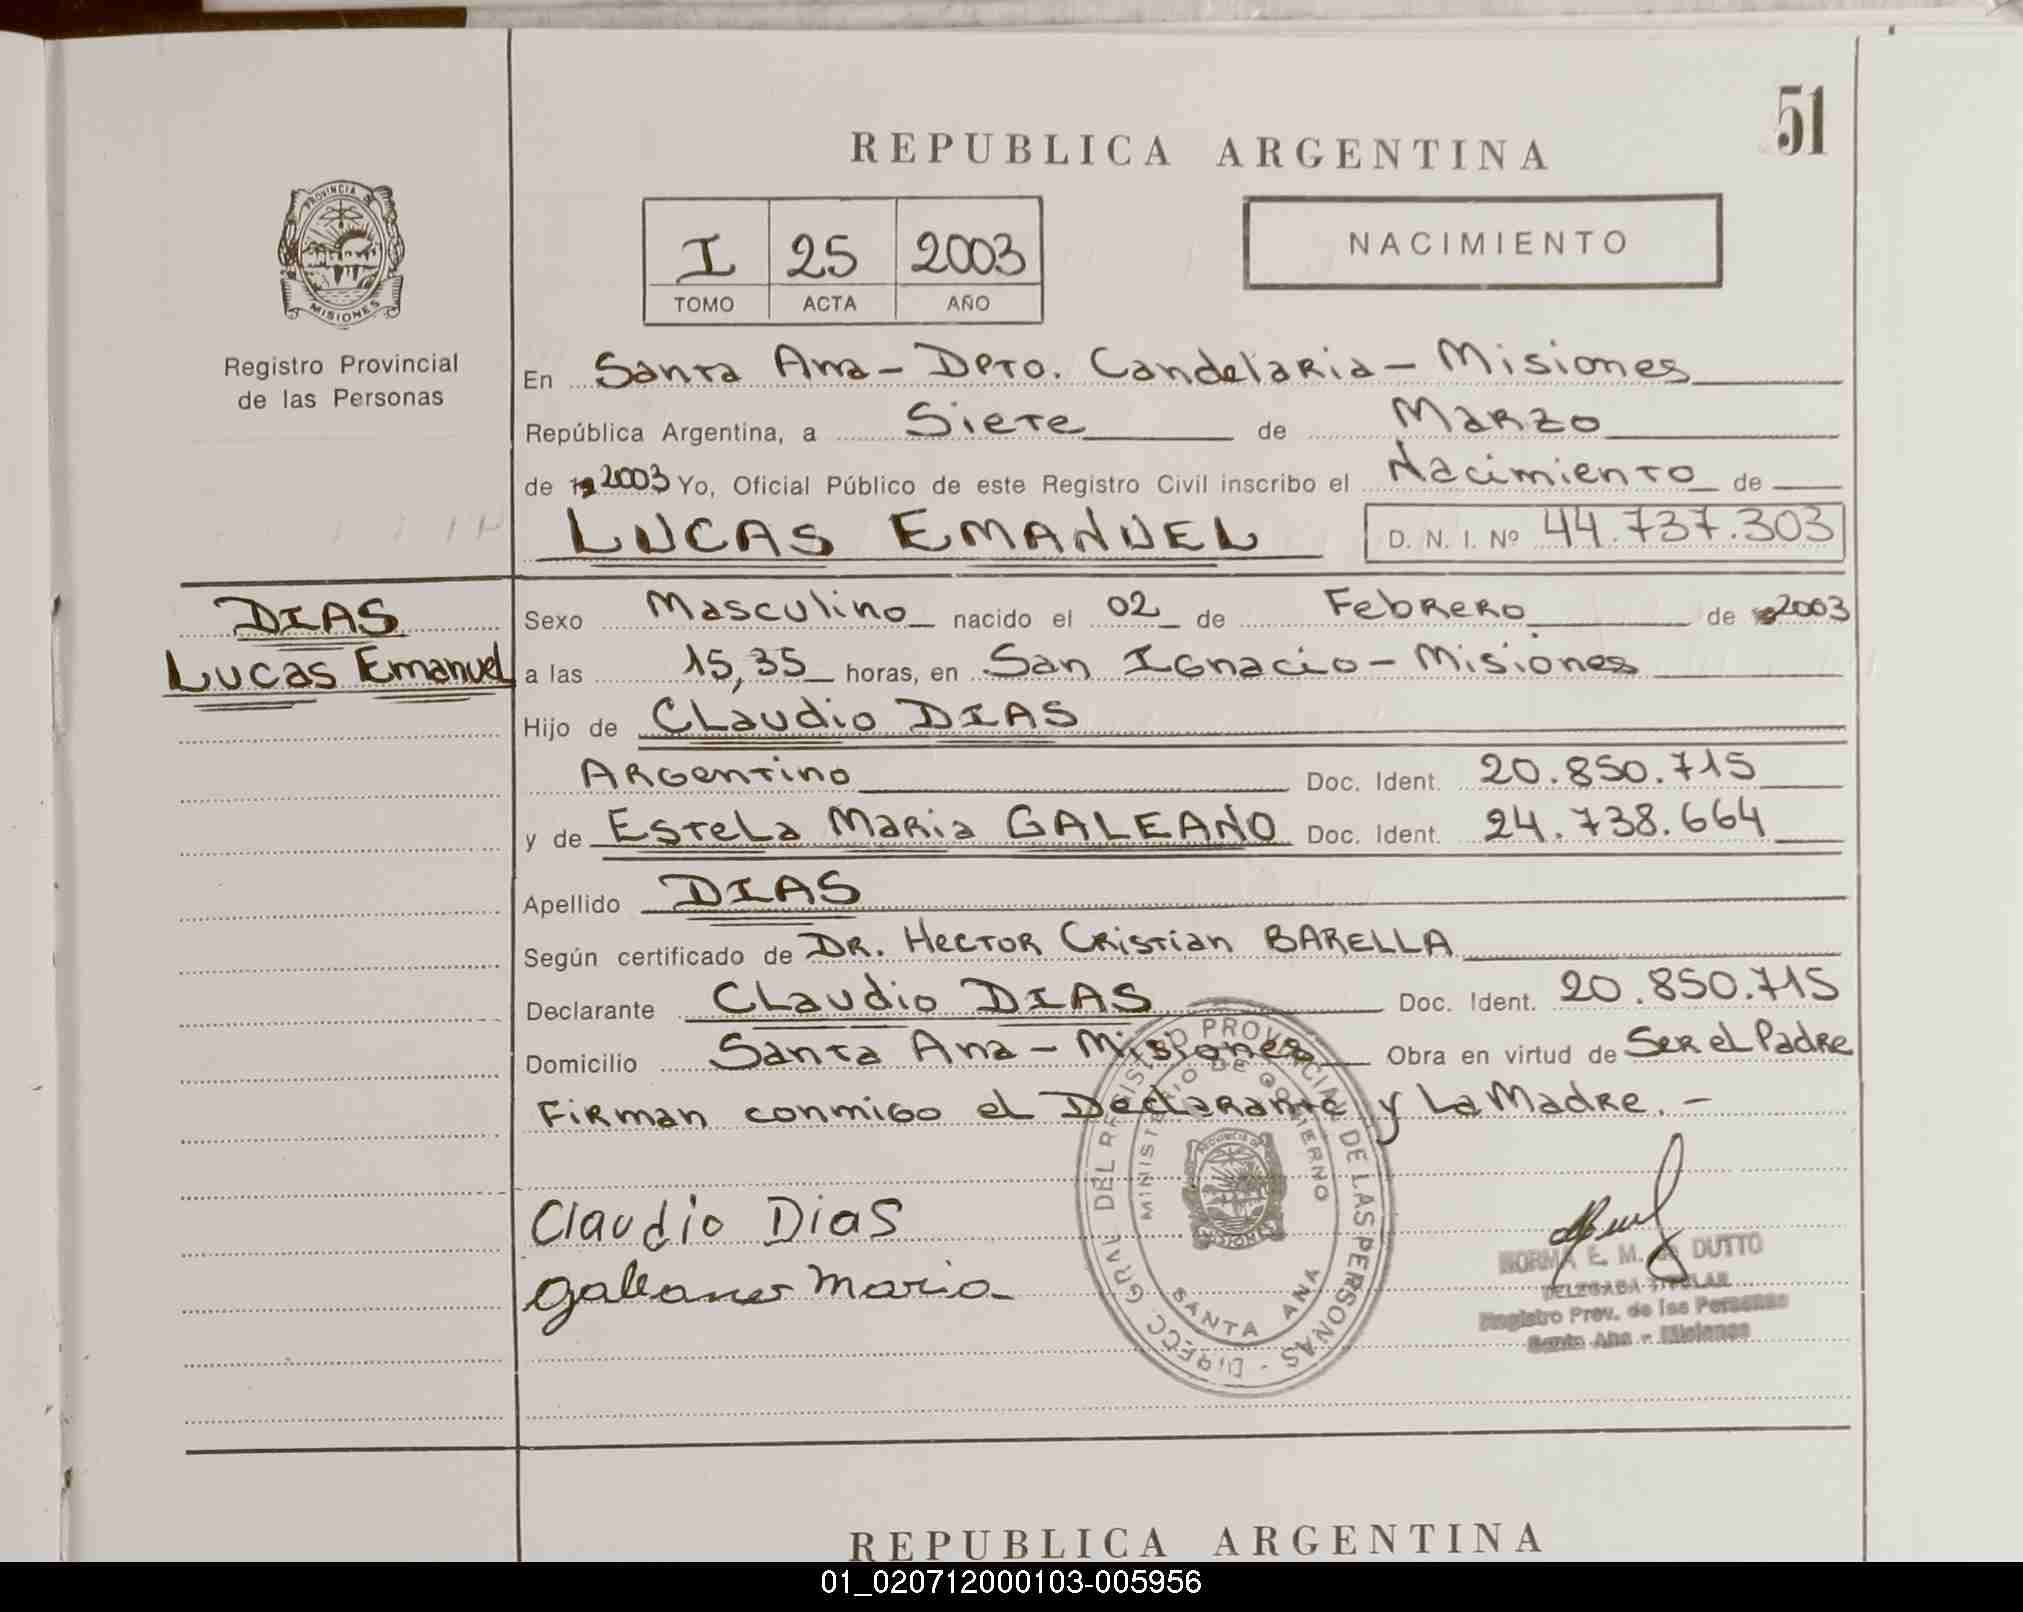 51
REPUBLICA ARGENTINA
I 25 2003
TOMO ACTA AÑO
NACIMIENTO
PROVINCIA DE
MISIONES
Registro Provincial
de las Personas
En Santa Ana - Dpto. Candelaria - Misiones
República Argentina, a Siete de Marzo
de 19 2003 Yo, Oficial Público de este Registro Civil inscribo el Nacimiento de
LUCAS EMANUEL D. N. I. Nº 44.737.303
DIAS
Lucas Emanuel
Sexo Masculino nacido el 02 de Febrero de 2003
a las 15,35 horas, en San Ignacio - Misiones
Hijo de Claudio DIAS
Argentino Doc. Ident. 20.850.715
y de Estela Maria GALEANO Doc. Ident. 24.738.664
Apellido DIAS
Según certificado de DR. Hector Cristian BARELLA
Declarante Claudio DIAS Doc. Ident. 20.850.715
Domicilio Santa Ana - Misiones Obra en virtud de Ser el Padre
Firman conmigo el Declarante y La Madre. -
Claudio Dias
Galeano Maria
DIRECC. GRAL. DEL REGISTRO PROVINCIAL DE LAS PERSONAS -
MINISTERIO DE GOBIERNO
SANTA ANA
NORMA E. M. DUTTO
DELEGADA TITULAR
Registro Prov. de las Personas
Santa Ana - Misiones
REPUBLICA ARGENTINA
01_020712000103-005956